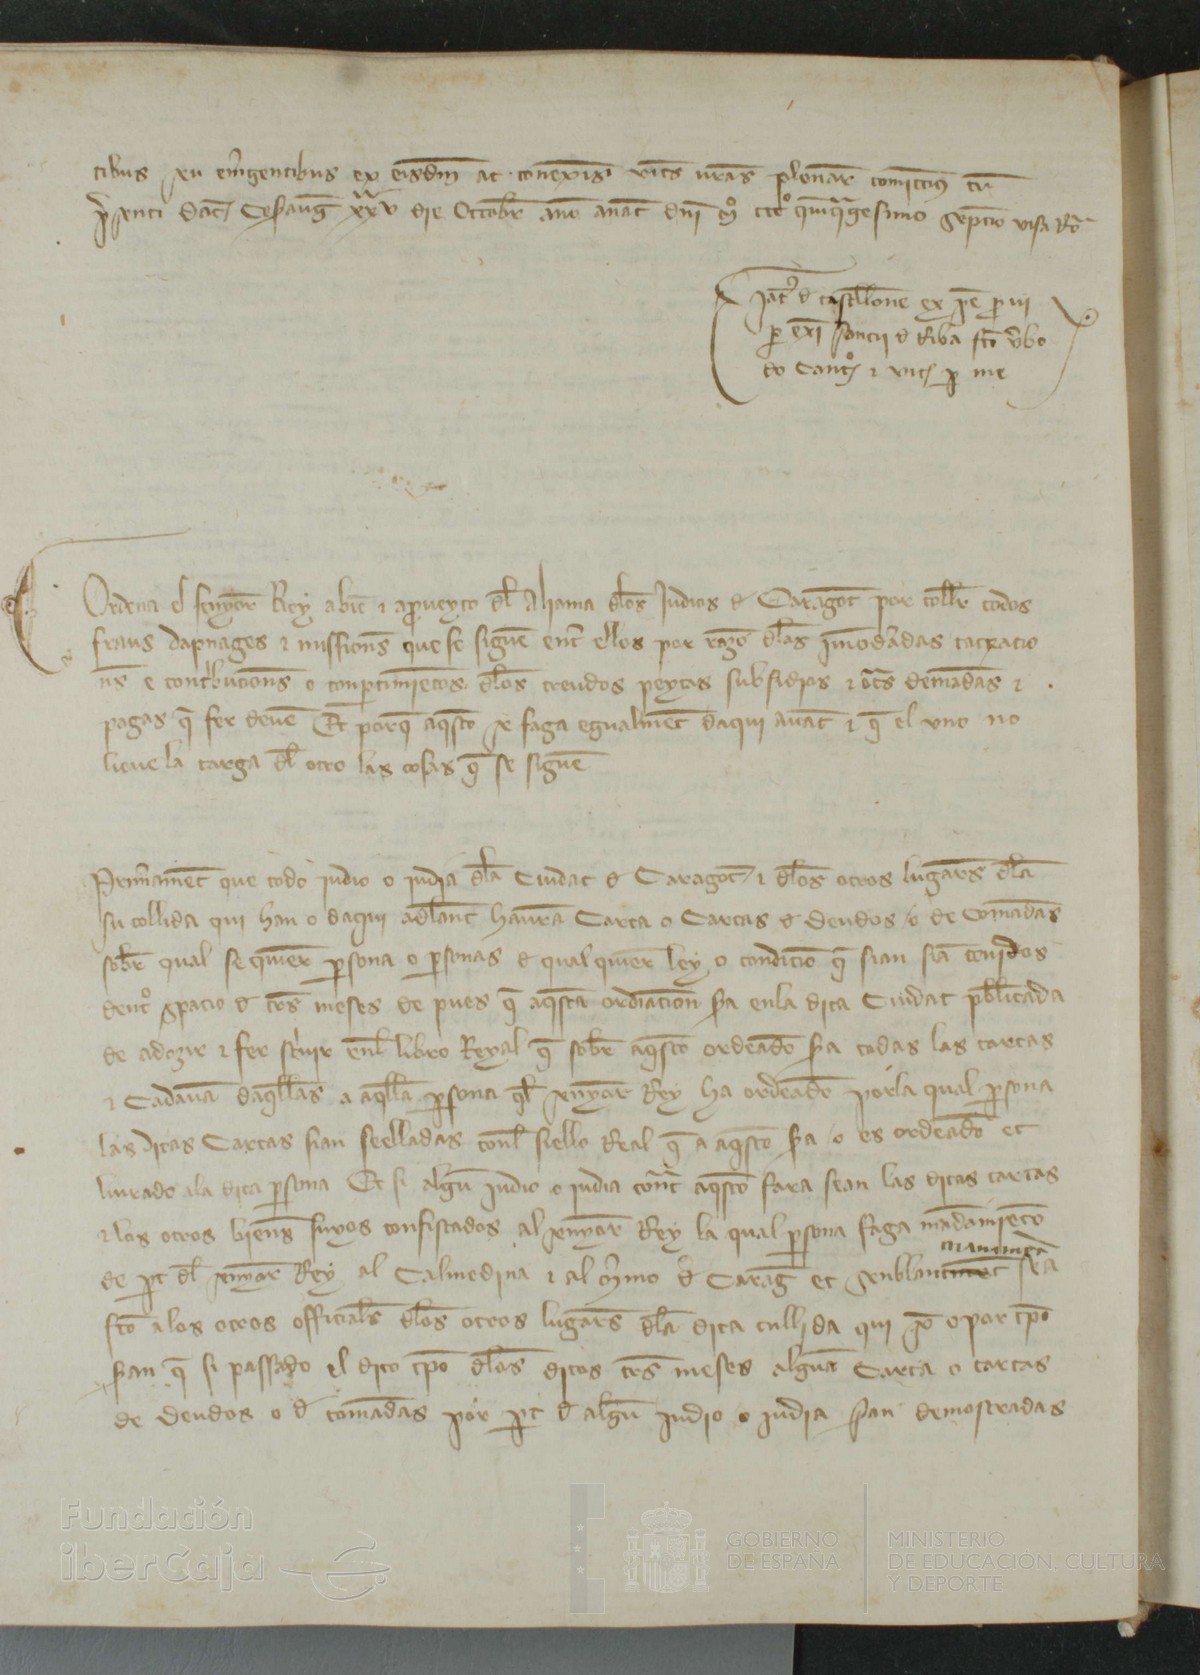 tibus seu emergentibus ex eisdm ac conexis vices nras plenar comittim cu
psenti Dat Cesaug xxv die Octobr ano anat dni mo ccco quiquagesimo septio visa Ro
Jac de castellone ex pe p
p exi Sancii d Riba fco vbo
do Canc z p me
Ordena el senyor Rey a bie z aprueyto dl Aljama dlos Judios d Caragoc por tollr todos
fraus dapnages z missions que se sigue entr ellos por razo dlas imodadas tacxacio
ns e contbucions o conptimientos dlos treudos peytas subsidios z otrs demadas z
pagas q fer deue Et porq aqsto se faga egualment daqui auat z q el vno no
lieue la carga dl otro las cosas q se sigue
Primament que todo judio o judia dla Ciudat d Caragoc z dlos otros lugars dla
su collida qui han o daqui adlant haura Carta o Cartas d deudos o de comadas
sobr qual se quier psona o psonas d qual quier ley o condicio q sian sia tenidos
dento spacio d tres meses de pues q aqsta ordiacion sia en la dita Ciudat pblicada
de adozir z fer scuir enl libro Reyal q sobr aqsto ordeado sia todas las cartas
z Cadaua daqllas a aqlla psona ql senyor Rey ha ordeado por la qual psona
las ditas Cartas sian seelladas conl siello Real q a aqsto sia o es ordeado et
liurado ala dita psona Et si algu judio o judia contr aqsto fara sean las ditas cartas
z los otros biens suyos confiscados al senyor Rey la qual psona faga madamieto
de pt dl senyor Rey al Calmedina z al mo d Carag et senblant manmeta sea
fco a los otros officials dlos otros lugars dla dita cullida qui son o por tpo
sian q si passado el dito tpo dlos ditos trs meses algua Carta o cartas
de deudos o d comadas por pt d algu judio o judia sian demostradas
Fundación
iberCaja
GOBIERNO
DE ESPAÑA
MINISTERIO
DE EDUCACIÓN, CULTURA
Y DEPORTE